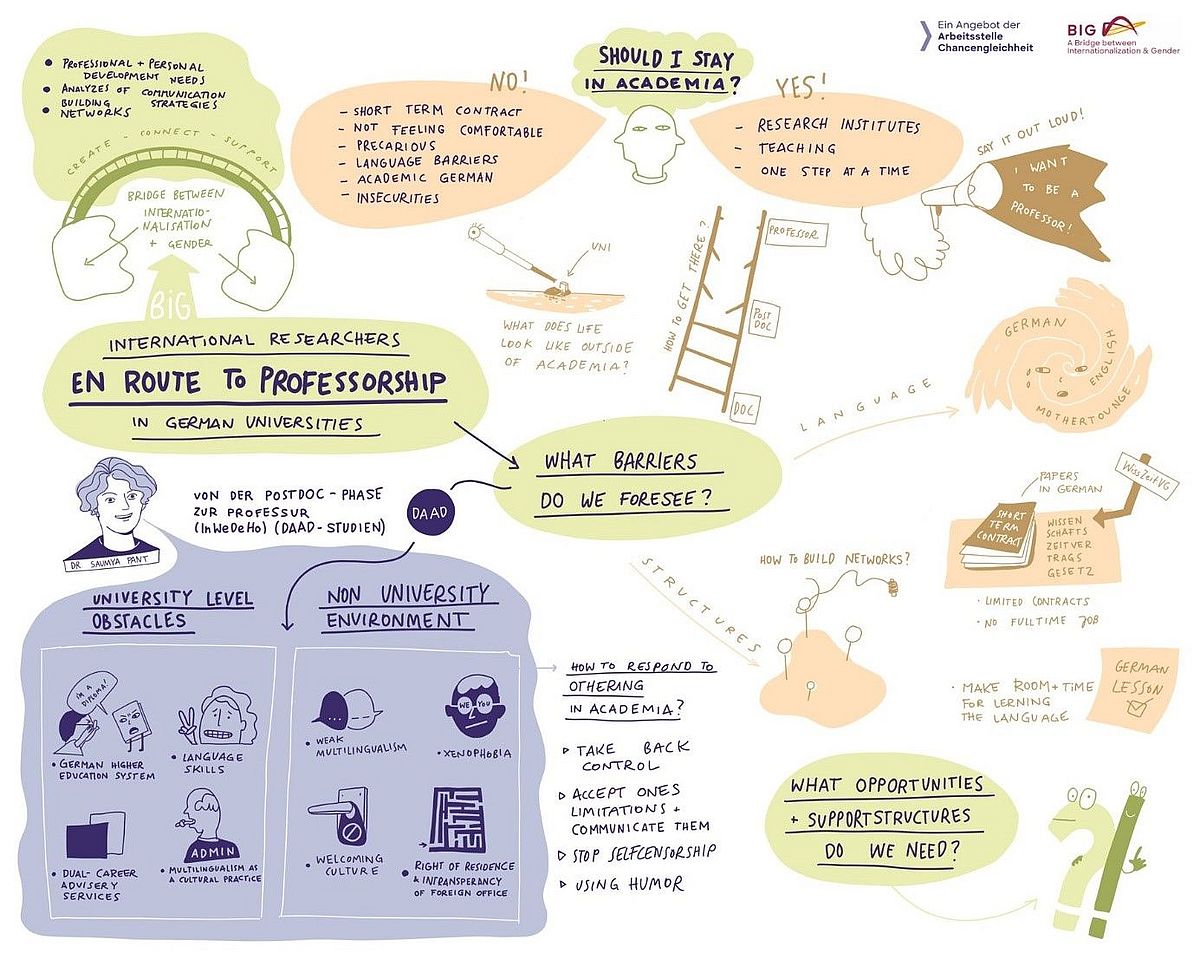 Ein Angebot der
Arbeitsstelle
Chancengleichheit
BIG
A Bridge between
Internationalization & Gender
• PROFESSIONAL + PERSONAL
DEVELOPMENT NEEDS
• ANALYZES OF COMMUNICATION
STRATEGIES
• BUILDING
NETWORKS
CREATE - CONNECT - SUPPORT
BRIDGE BETWEEN
INTERNATIO-
NALISATION
+ GENDER
BiG
INTERNATIONAL RESEARCHERS
EN ROUTE TO PROFESSORSHIP
IN GERMAN UNIVERSITIES
SHOULD I STAY
IN ACADEMIA?
NO!
- SHORT TERM CONTRACT
- NOT FEELING COMFORTABLE
- PRECARIOUS
- LANGUAGE BARRIERS
- ACADEMIC GERMAN
- INSECURITIES
YES!
- RESEARCH INSTITUTES
- TEACHING
- ONE STEP AT A TIME
SAY IT OUT LOUD!
I WANT
TO BE A
PROFESSOR!
UNI
WHAT DOES LIFE
LOOK LIKE OUTSIDE
OF ACADEMIA?
HOW TO GET THERE?
PROFESSOR
POST
DOC
DOC
WHAT BARRIERS
DO WE FORESEE?
LANGUAGE
GERMAN
ENGLISH
MOTHERTOUNGE
PAPERS
IN GERMAN
WissZeitVG
SHORT
TERM
CONTRACT
WISSEN
SCHAFTS
ZEITVER
TRAGS
GESETZ
• LIMITED CONTRACTS
• NO FULLTIME JOB
STRUCTURES
HOW TO BUILD NETWORKS?
• MAKE ROOM + TIME
FOR LERNING
THE LANGUAGE
GERMAN
LESSON
DR. SAUMYA PANT
VON DER POSTDOC - PHASE
ZUR PROFESSUR
(InWeDeHo) (DAAD-STUDIEN)
DAAD
UNIVERSITY LEVEL
OBSTACLES
I'M A
DIPLOMA!
• GERMAN HIGHER
EDUCATION SYSTEM
• LANGUAGE
SKILLS
• DUAL-CAREER
ADVISERY
SERVICES
ADMIN
• MULTILINGUALISM AS
A CULTURAL PRACTICE
NON UNIVERSITY
ENVIRONMENT
• WEAK
MULTILINGUALISM
WE YOU
• XENOPHOBIA
• WELCOMING
CULTURE
• RIGHT OF RESIDENCE
& INTRANSPERANCY
OF FOREIGN OFFICE
HOW TO RESPOND TO
OTHERING
IN ACADEMIA?
▷ TAKE BACK
CONTROL
▷ ACCEPT ONES
LIMITATIONS +
COMMUNICATE THEM
▷ STOP SELFCENSORSHIP
▷ USING HUMOR
WHAT OPPORTUNITIES
+ SUPPORTSTRUCTURES
DO WE NEED?